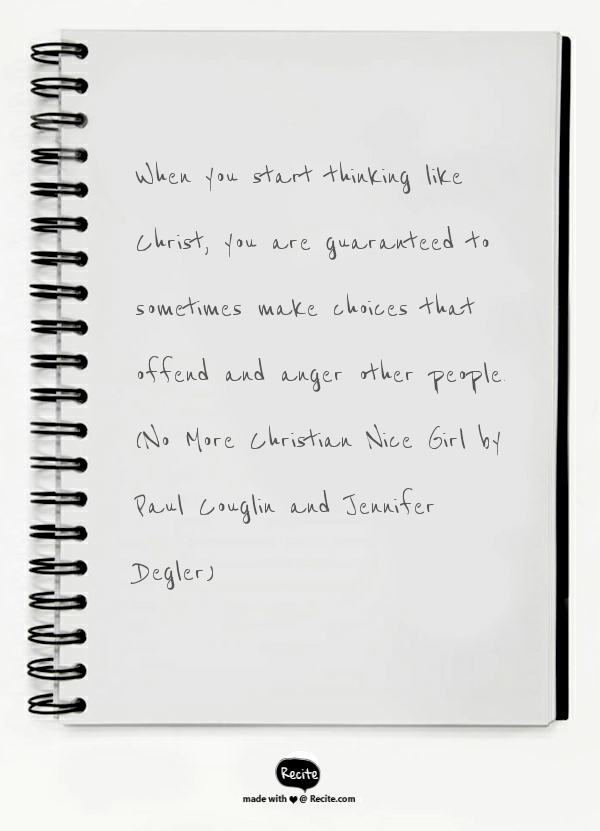 When you start thinking like
Christ, you are guaranteed to
sometimes make choices that
offend and anger other people.
(No More Christian Nice Girl by
Paul Couglin and Jennifer
Degler)
Recite
made with ❤ @ Recite.com